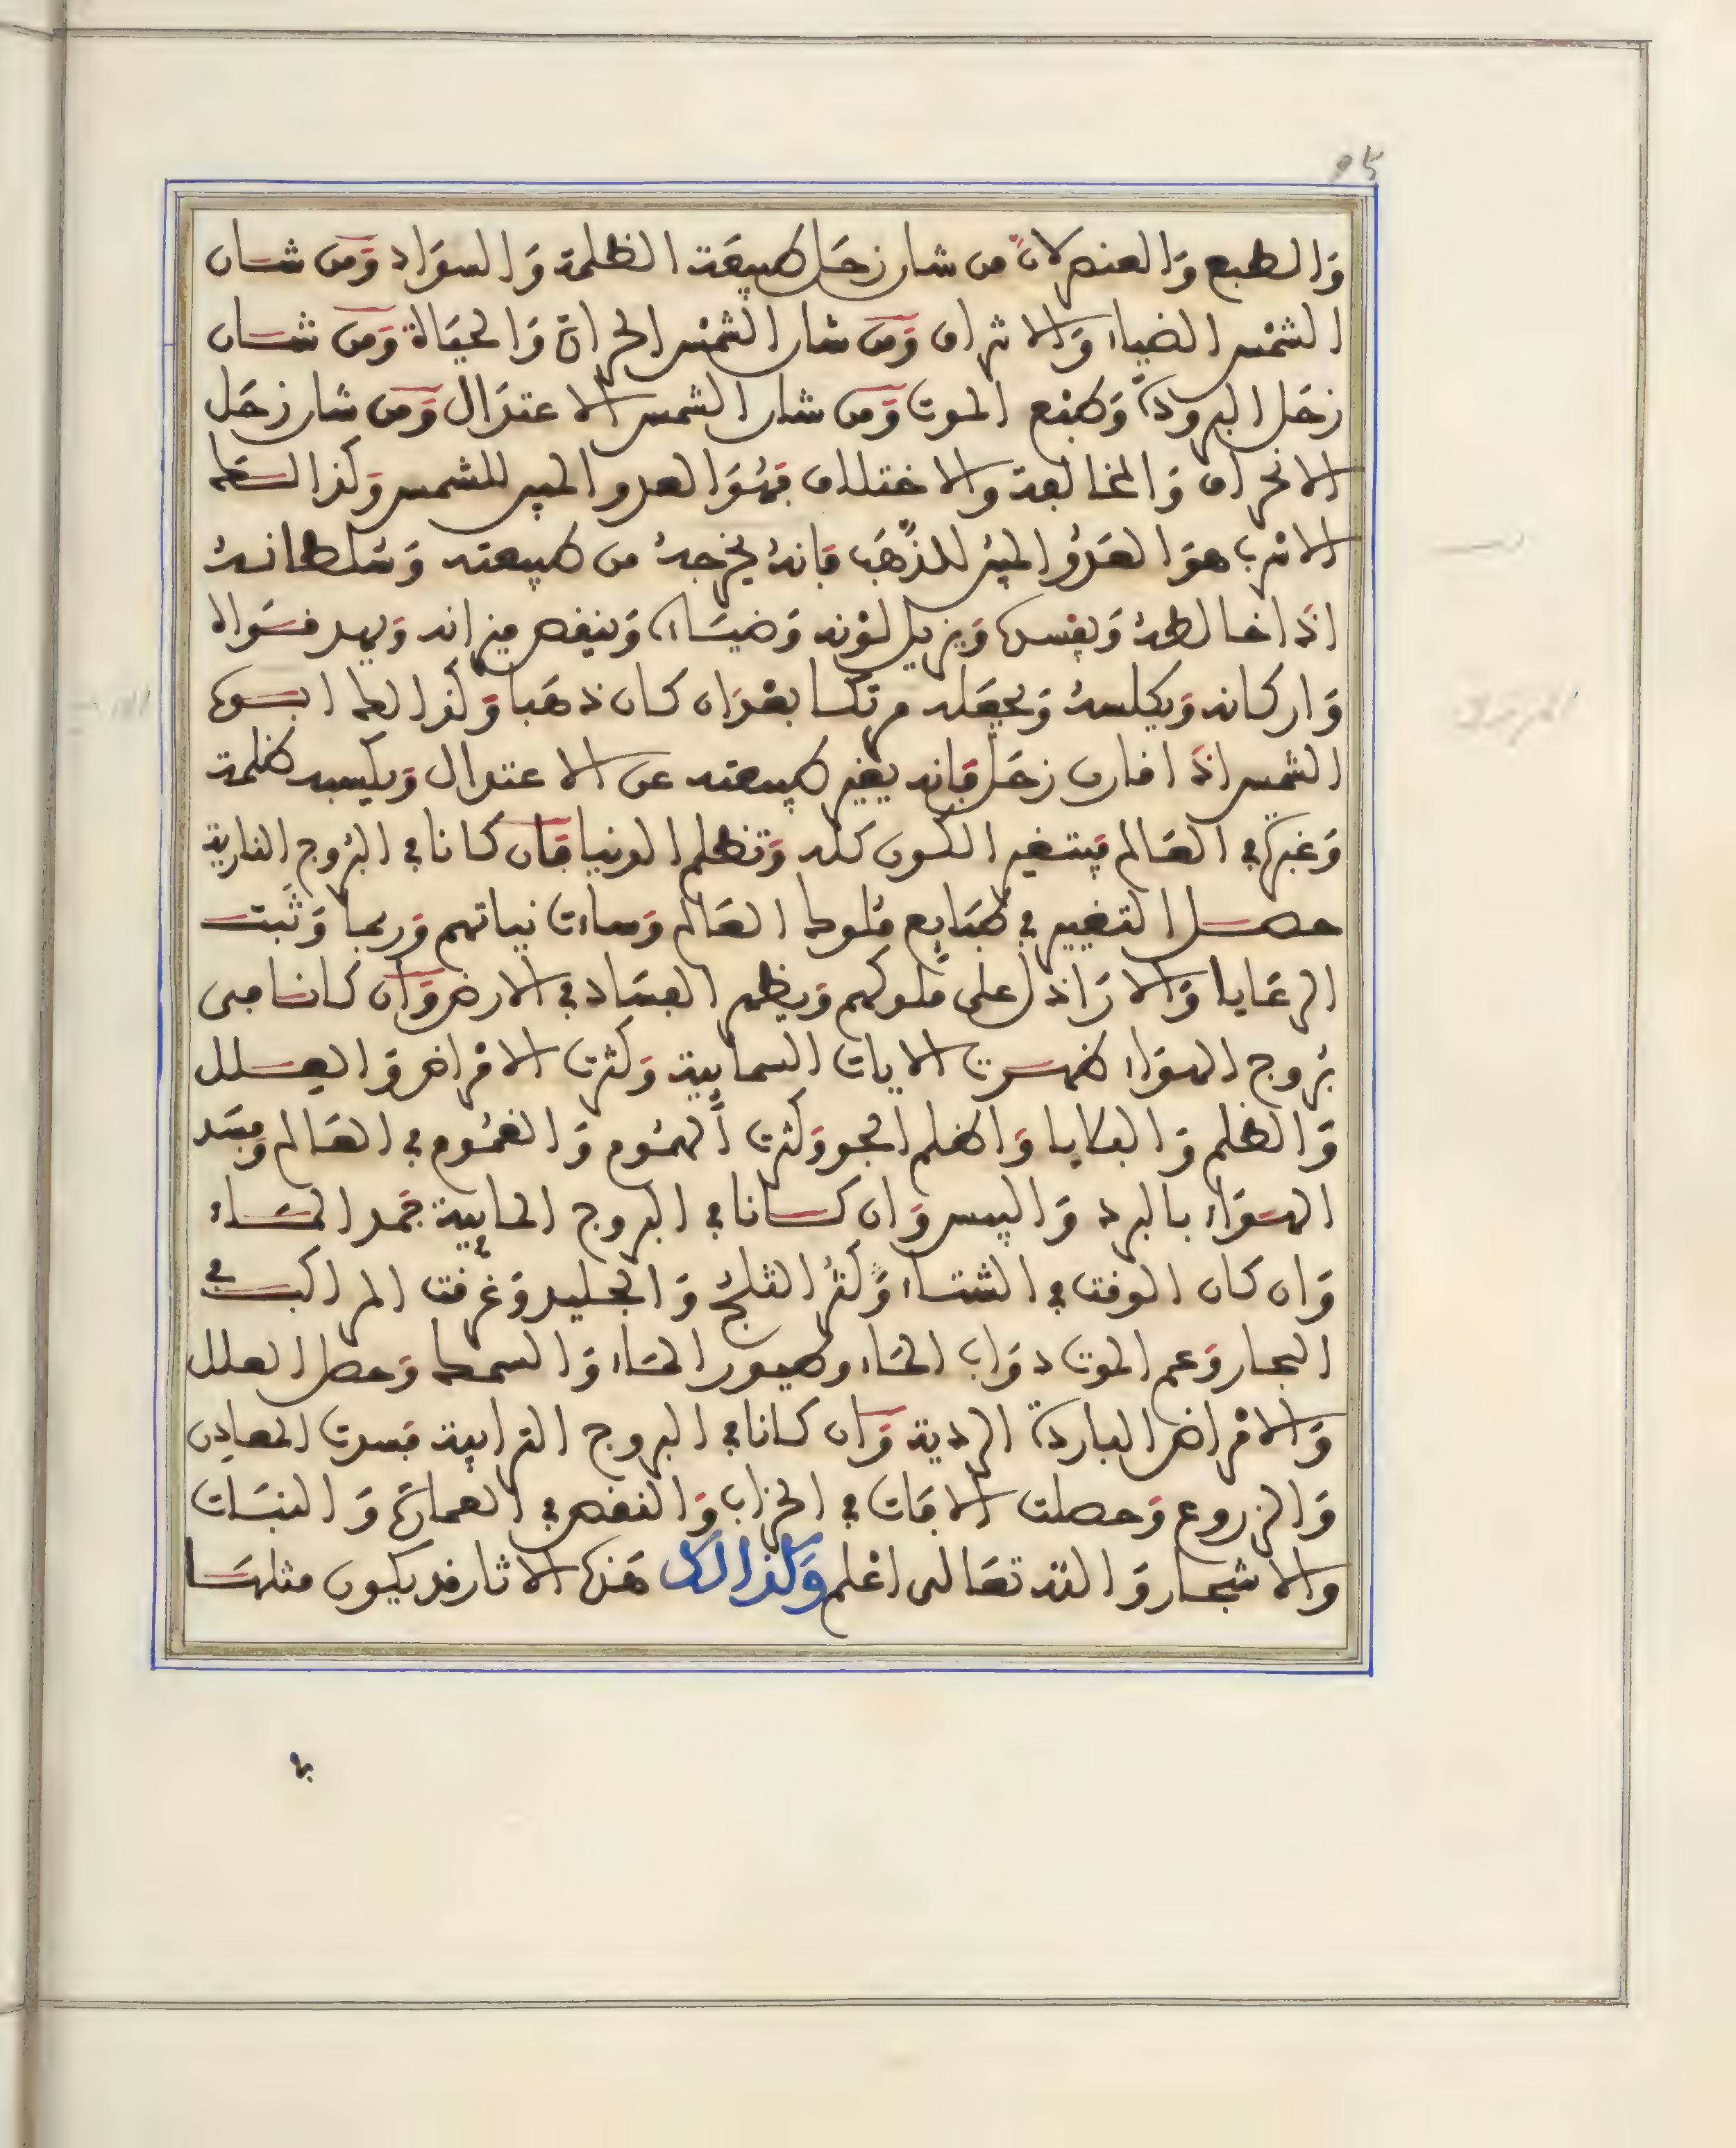 وَالطبع وَالعنصر لانّ من شان زحَل طبيعَة الظلمة وَالسوَاد وَمن شان
الشمْس الضياء وَالاشراق وَمن شان الشمْس الحرارة وَالحيَاة وَمن شان
زحَل البرودة وَطبْع الموت وَمن شان الشمس الاعتدَال وَمن شان زحَل
الانحراف وَالمخالفة والاختلاف فهُوَ العدو المبين للشمس وَكذالك
الاسرب هوَ العَدُو المبين للذّهَب فانهُ يخرجهُ من طبيعته وَسُلطانهُ
اذَا خالطهُ وَيفسده وَيزيل لوْنه وَضيَاءه وَينقص ميزانه وَيهد قوَاه
وَاركانه وَيكلسهُ وَيجعَله مرتكا بعْدَ ان كان ذهَبا وَكذالك ابوه
الشمس اذَا قارن زحَل فانه يغير طبيعته عن الاعتدال وَيكسبه ظلمة
وَغبرة في العَالم فيتغير الكون كله وَتظلم الدنيا فان كانا في البرُوج النارية
حصل التغيير في طبَايع مُلوك العَالم وَساءت نياتهم وَربما وَثَبت
الرعَايا وَالارَاذل على مُلوكهم وَيظهر الفسَاد في الارض وَان كانا في
برُوج الهوَاء ظهرت الايات السمايية وَكثرت الامْراض وَالعلل
وَالظلم وَالبلايا وَاظلم الجو وَكثرت الهمُوم وَالغمُوم في العَالم وَفسَد
الهوَاء بالبرد وَاليبس وَان كانا في البروج المايية جَمد المَاء
وَان كان الوقت في الشتاء وَكثرُ الثلجُ وَالجليد وَغرقت المراكب في
البحار وَعم الموت دوَاب المَاء وطيور المَاء وَالسمك وَحصل العلل
وَالامْراض الباردة الردية وَان كانا في البروج الترابية فسدت المعادن
وَالزروع وَحصلت الافات في الخراب وَالنقص في العمارَة وَالنبَات
والاشجار وَالله تعَالى اعْلم وَكذالك هَذه الاثار قد يكون مثلهَا